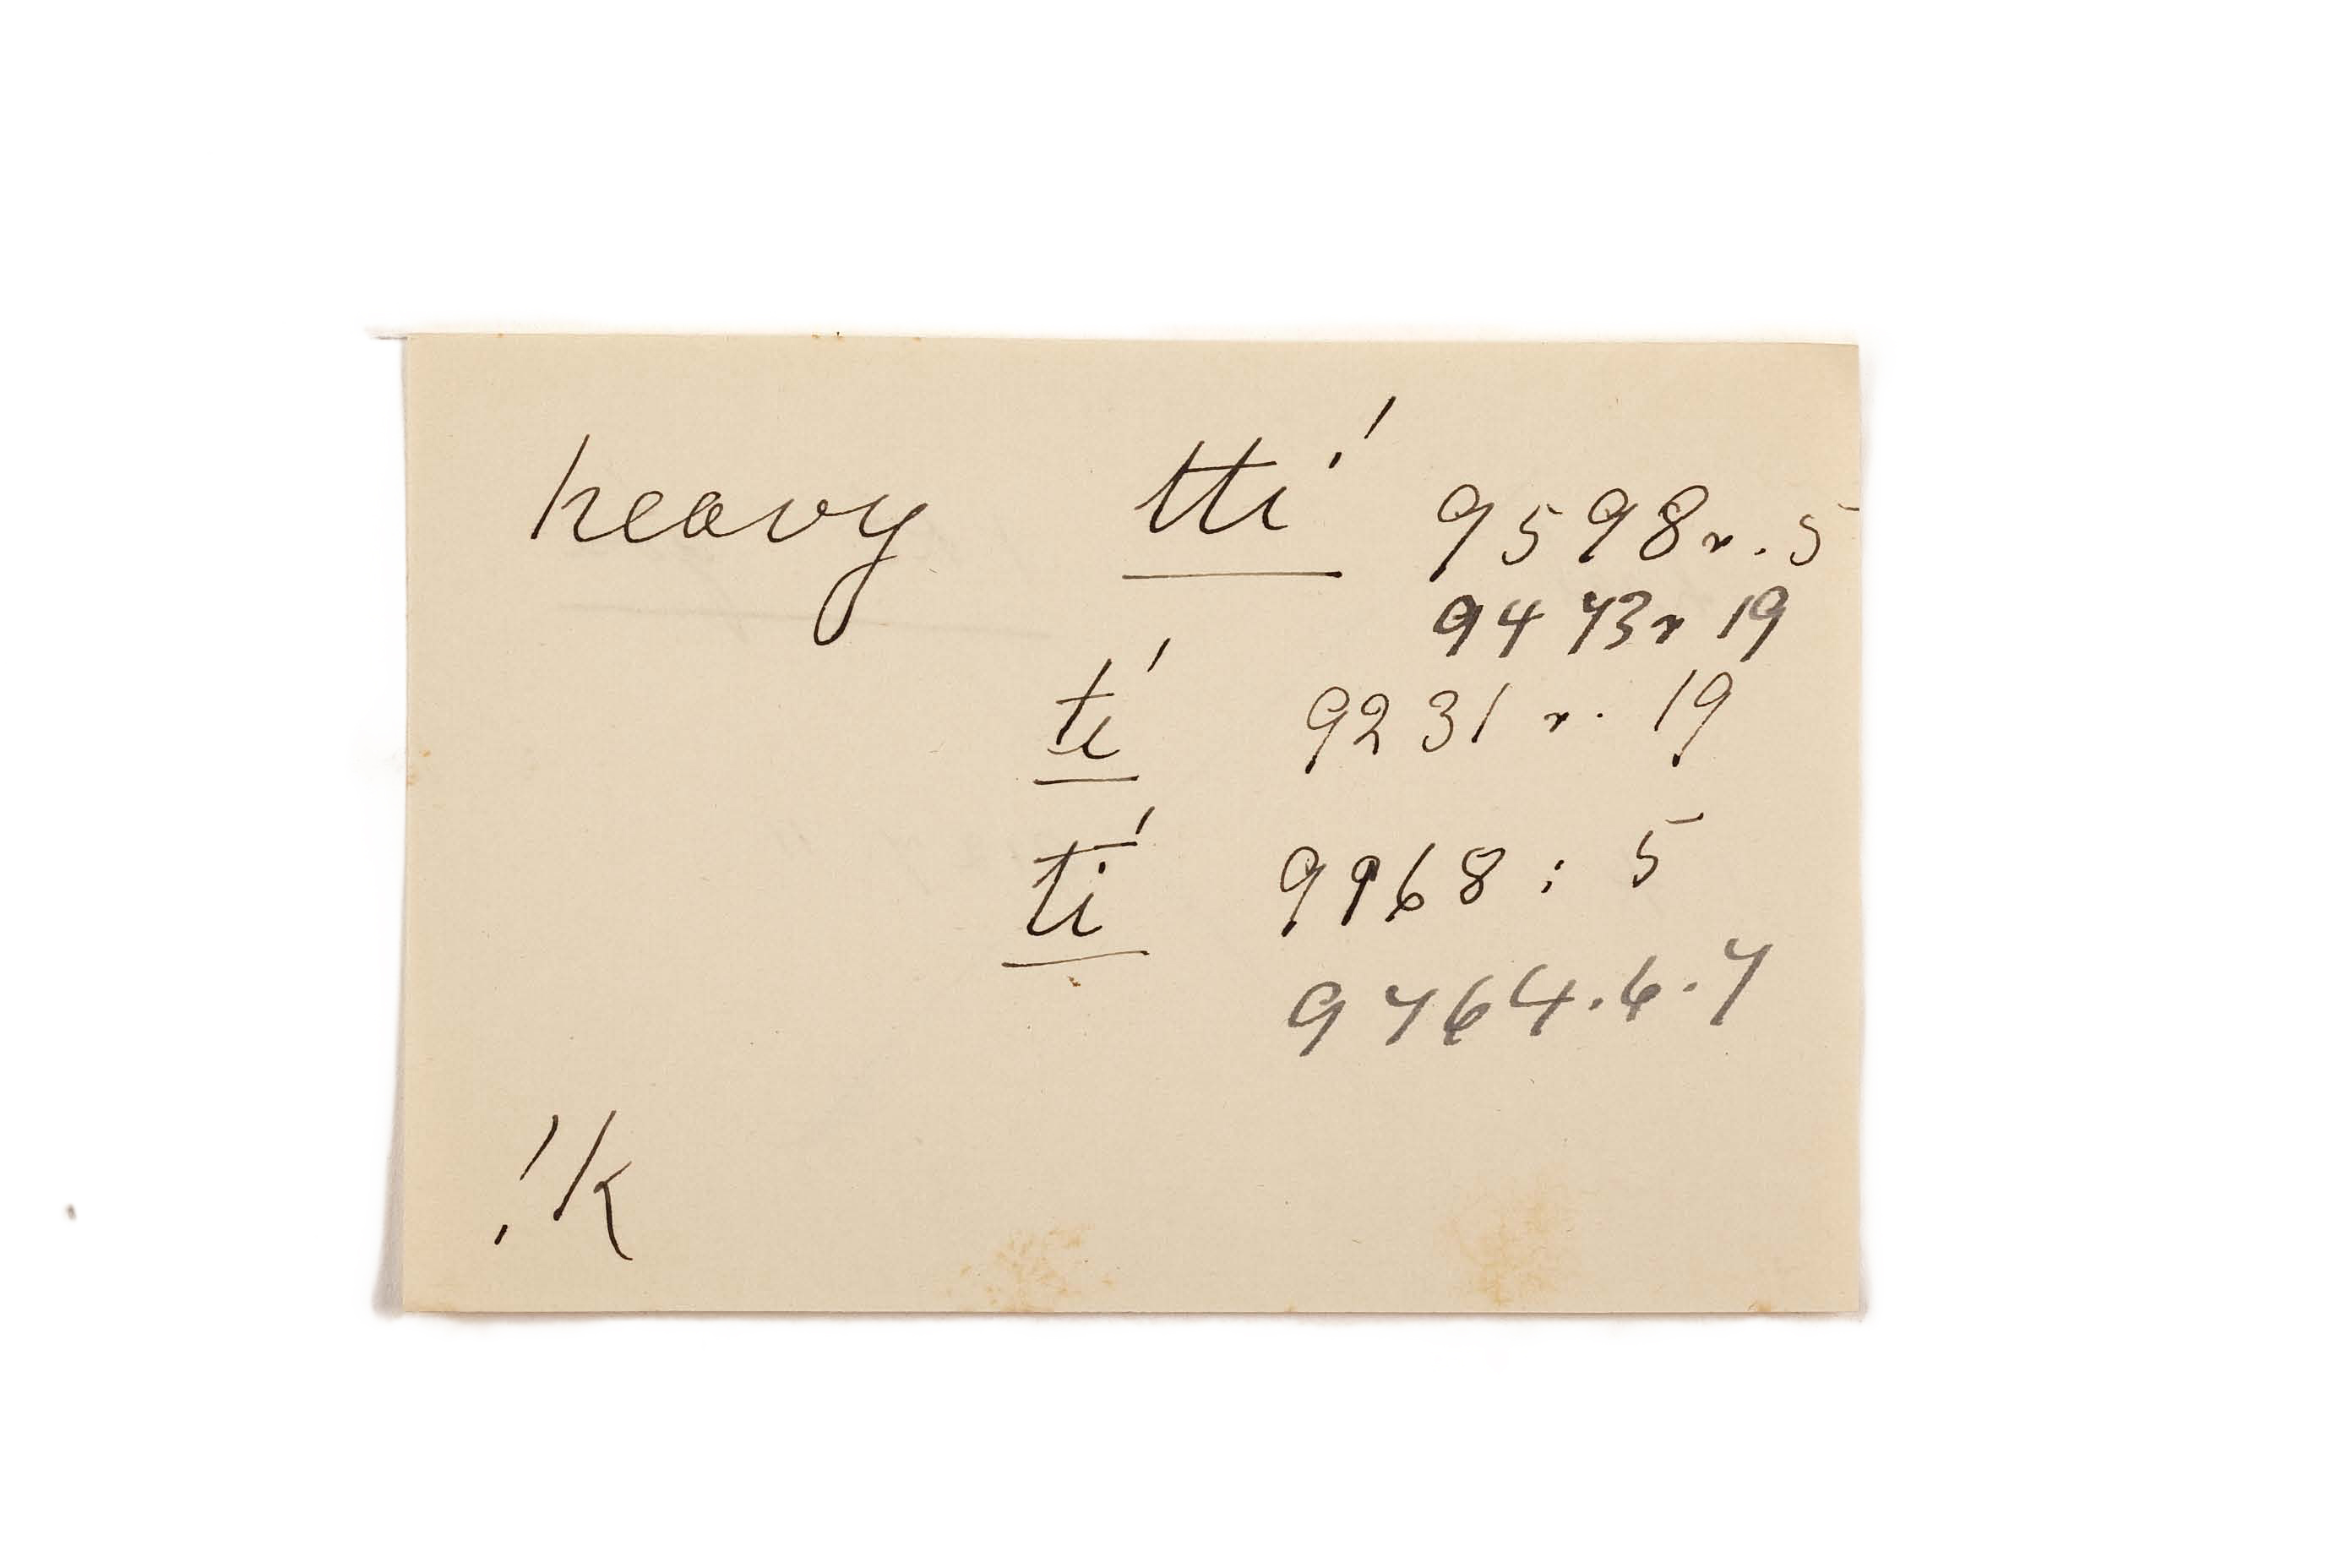 heavy ttí 9598r. 5
9473r 19
tí 9231 r. 19
tí 9968 : 5
9764.6.7
!k